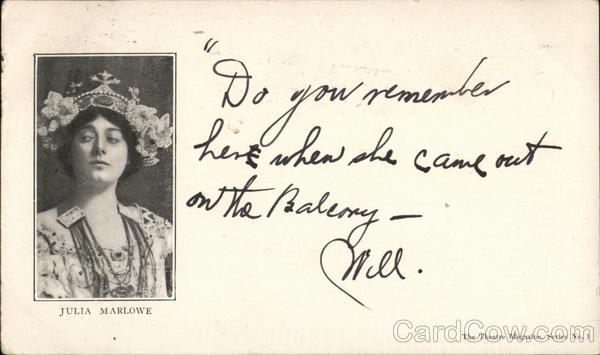 "Do you remember
here when she came out
on the Balcony —
Will.
JULIA MARLOWE
The Theatre Magazine, Series No. 1
CardCow.com